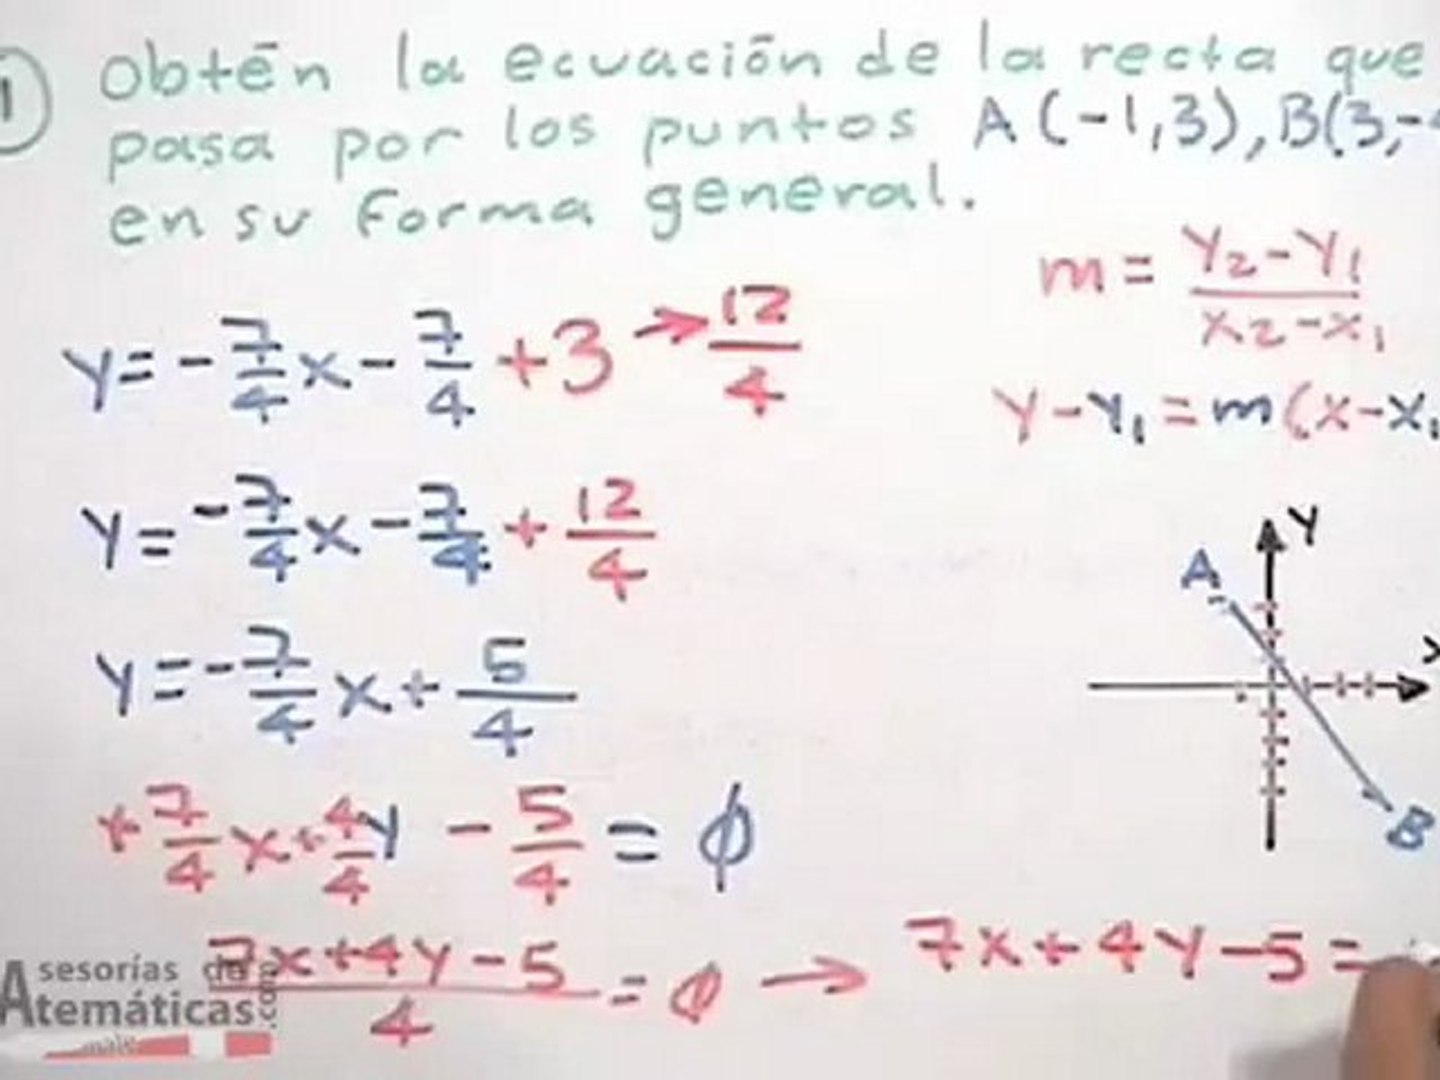 1 Obtēn la ecuación de la recta que
pasa por los puntos A(-1,3), B(3,-4
en su forma general.
m = Y2-Y1 / X2-X1
y = -7/4 x - 7/4 + 3 → 12/4
Y-Y1 = m(X-X1
y = -7/4 x - 7/4 + 12/4
Y
A
X
y = -7/4 x + 5/4
+7/4 x + 4/4 y - 5/4 = ϕ
B
7x+4y-5 / 4 = ϕ → 7x+4y-5=
Asesorías de
Atemáticas.com